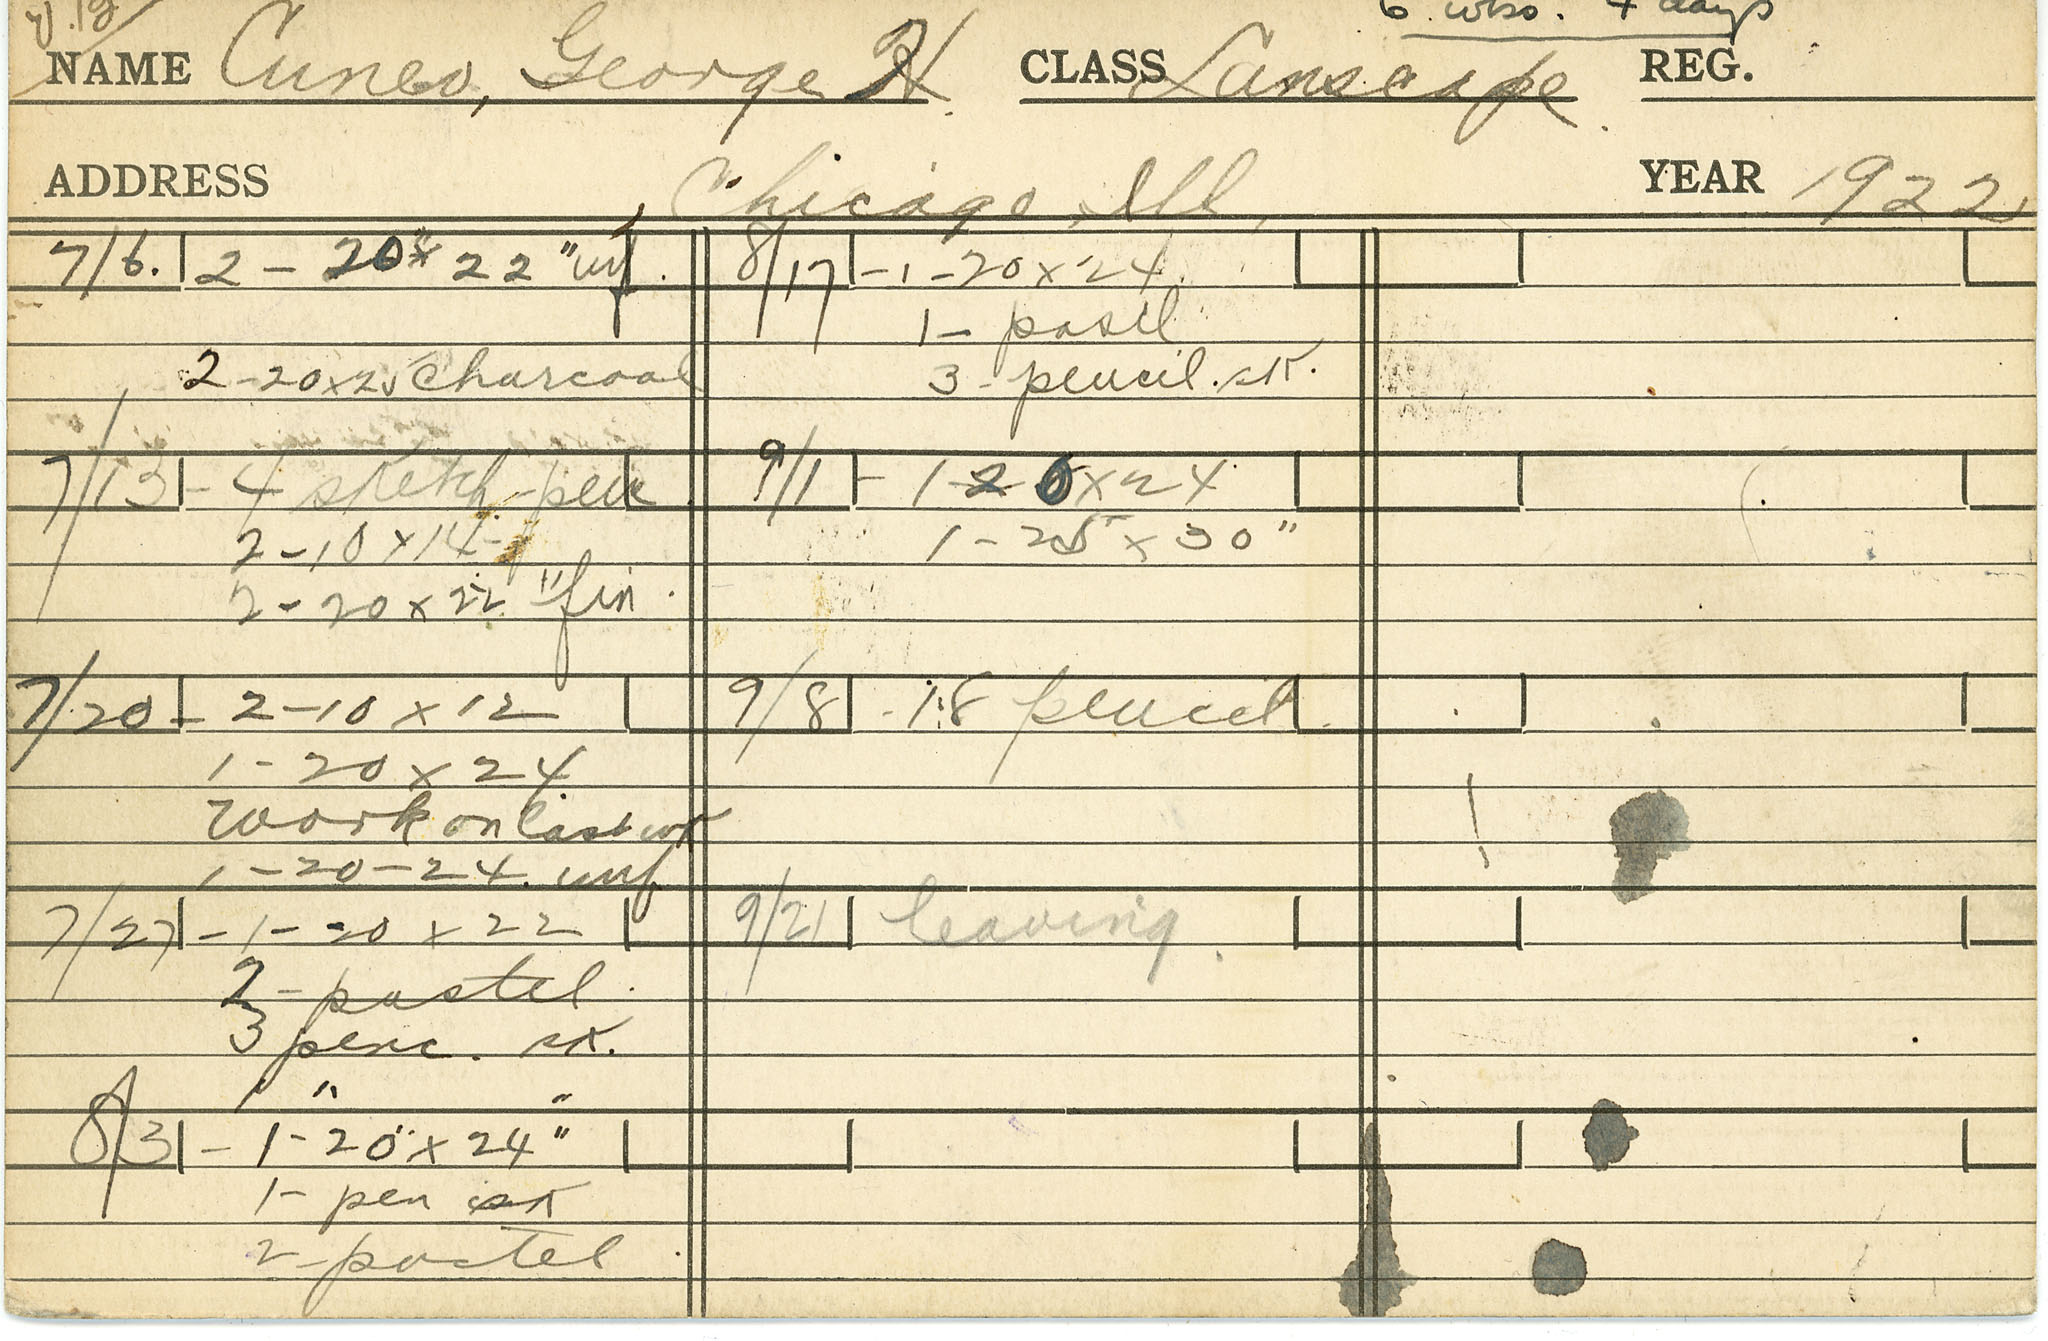 6 wks. 4 days
NAME Cuneo, George H. CLASS Lanscape. REG.
ADDRESS Chicago, Ill, YEAR 1922
7/6. 2 - 20" x 22" unf.
2 - 20 x 25 Charcoal
7/13 - 4 sketch - pen
2 - 10 x 14 -
2 - 20 x 22 " fin.
7/20 - 2 - 10 x 12
1 - 20 x 24
work on last wk
1 - 20 - 24. unf
7/27 - 1 - 20 x 22
2 - pastel.
3 penc. sk.
8/3 - 1 - 20" x 24"
1 - pen sk
2 - pastel
8/17 - 1 - 20 x 24.
1 - pastl
3 - pencil. sk.
9/1 - 1 - 20 x 24
1 - 25 x 30"
9/8 - 18 pencil.
9/21 leaving.